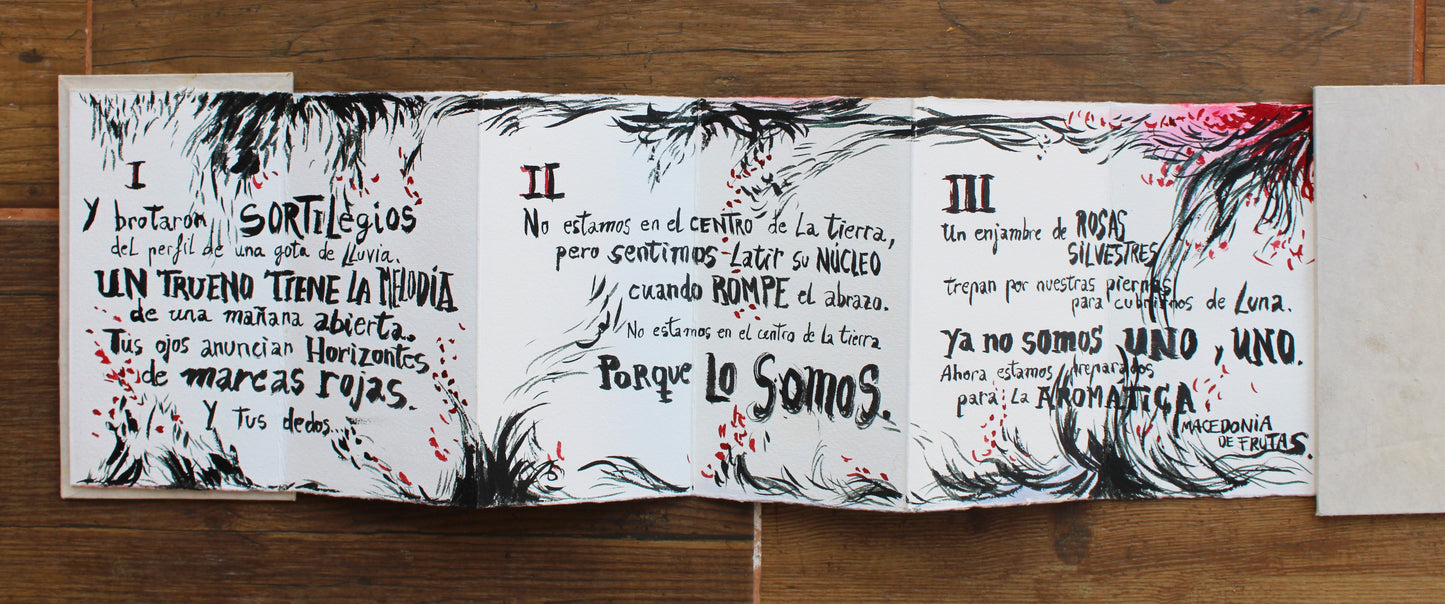 I
Y brotaron SORTILegios
del perfil de una gota de LLuvia.
UN TRUENO TIENE LA MELODÍA
de una mañana abierta.
Tus ojos anuncian Horizontes
de marcas rojas.
Y Tus dedos...
II
No estamos en el CENTRO de La tierra,
pero sentimos Latir su NÚCLEO
cuando ROMPE el abrazo.
No estamos en el centro de la tierra
PORQUE LO SOMOS.
III
Un enjambre de ROSAS
SILVESTRES
trepan por nuestras piernas
para cubrirnos de Luna.
Ya no somos UNO, UNO.
Ahora estamos preparados
para La AROMATICA
MACEDONIA
DE FRUTAS.